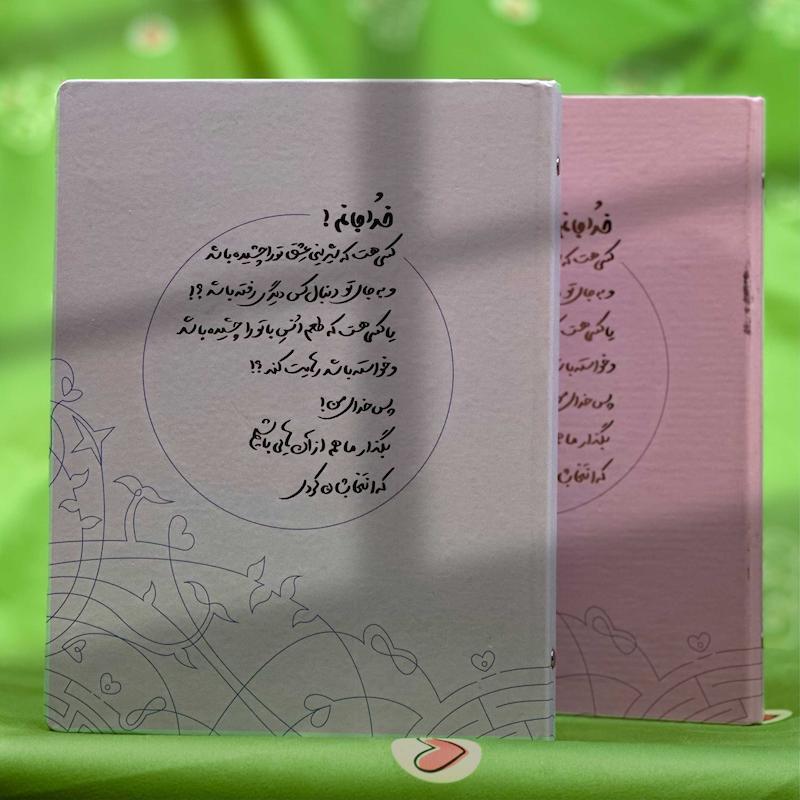 خداجانم !
کسی هست که شیرینی عشق تو را چشیده باشد
و به جای تو دنبال کس دیگری رفته باشد ؟!
یا کسی هست که طعم انس با تو را چشیده باشد
و خواسته باشد رهایت کند ؟!
پس خدای من !
بگذار ما هم از آن هایی باشیم
که انتخابشان کردی
خداجانم
کسی هست که
و به جای تو
یا کسی هست
و خواسته
پس خدای من
بگذار ما هم
که انتخابشان